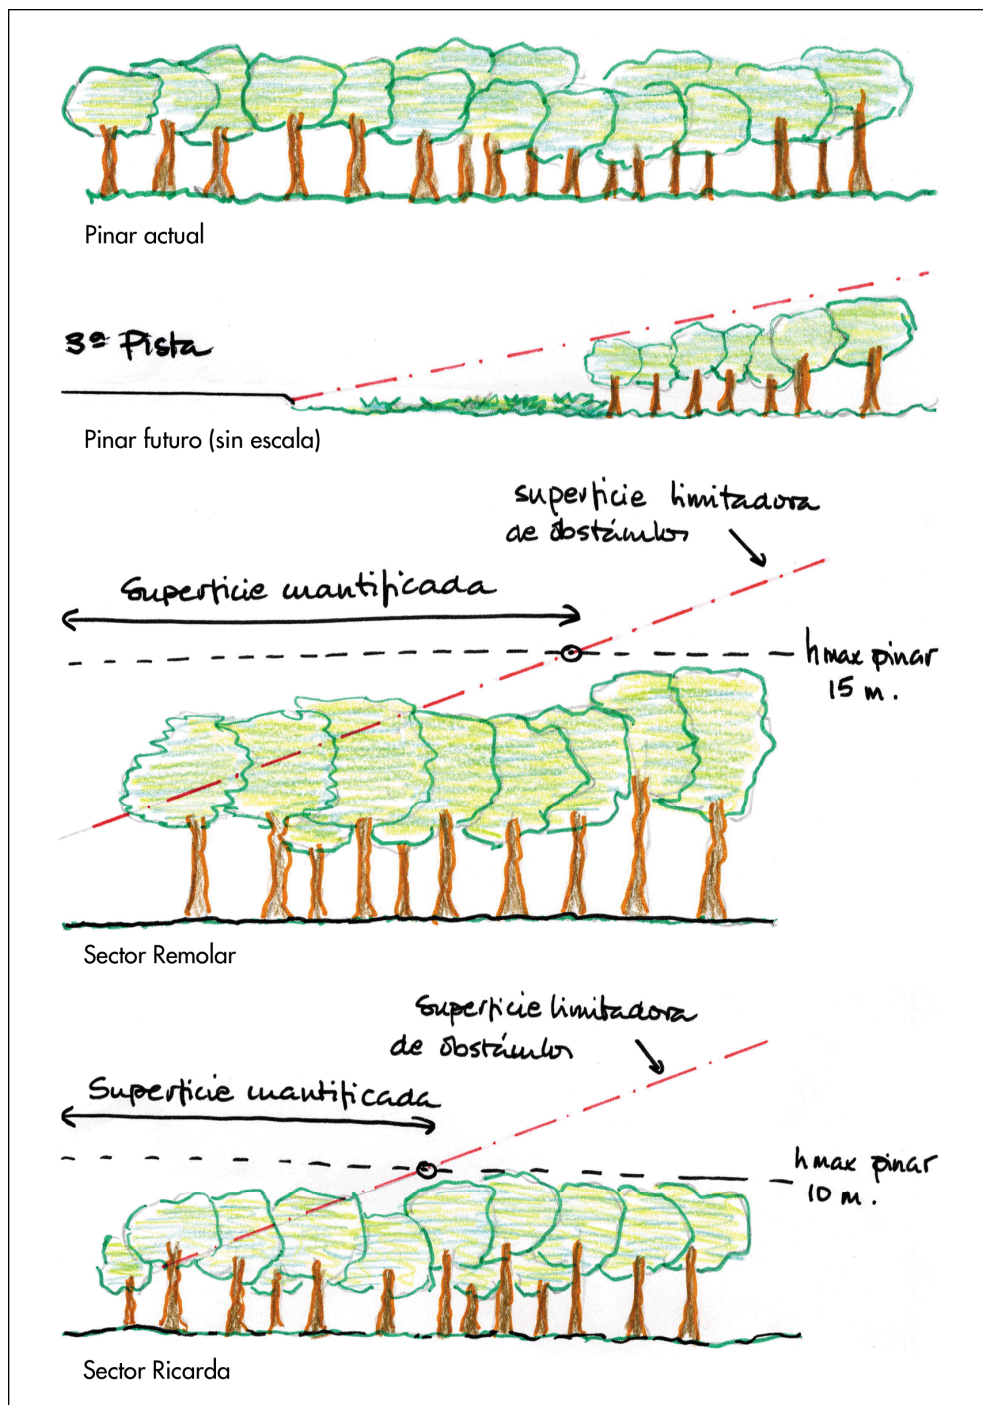 Pinar actual
3ª Pista
Pinar futuro (sin escala)
superficie limitadora
de obstáculos
Superficie cuantificada
hmax pinar
15 m.
Sector Remolar
Superficie limitadora
de obstáculos
Superficie cuantificada
hmax pinar
10 m.
Sector Ricarda